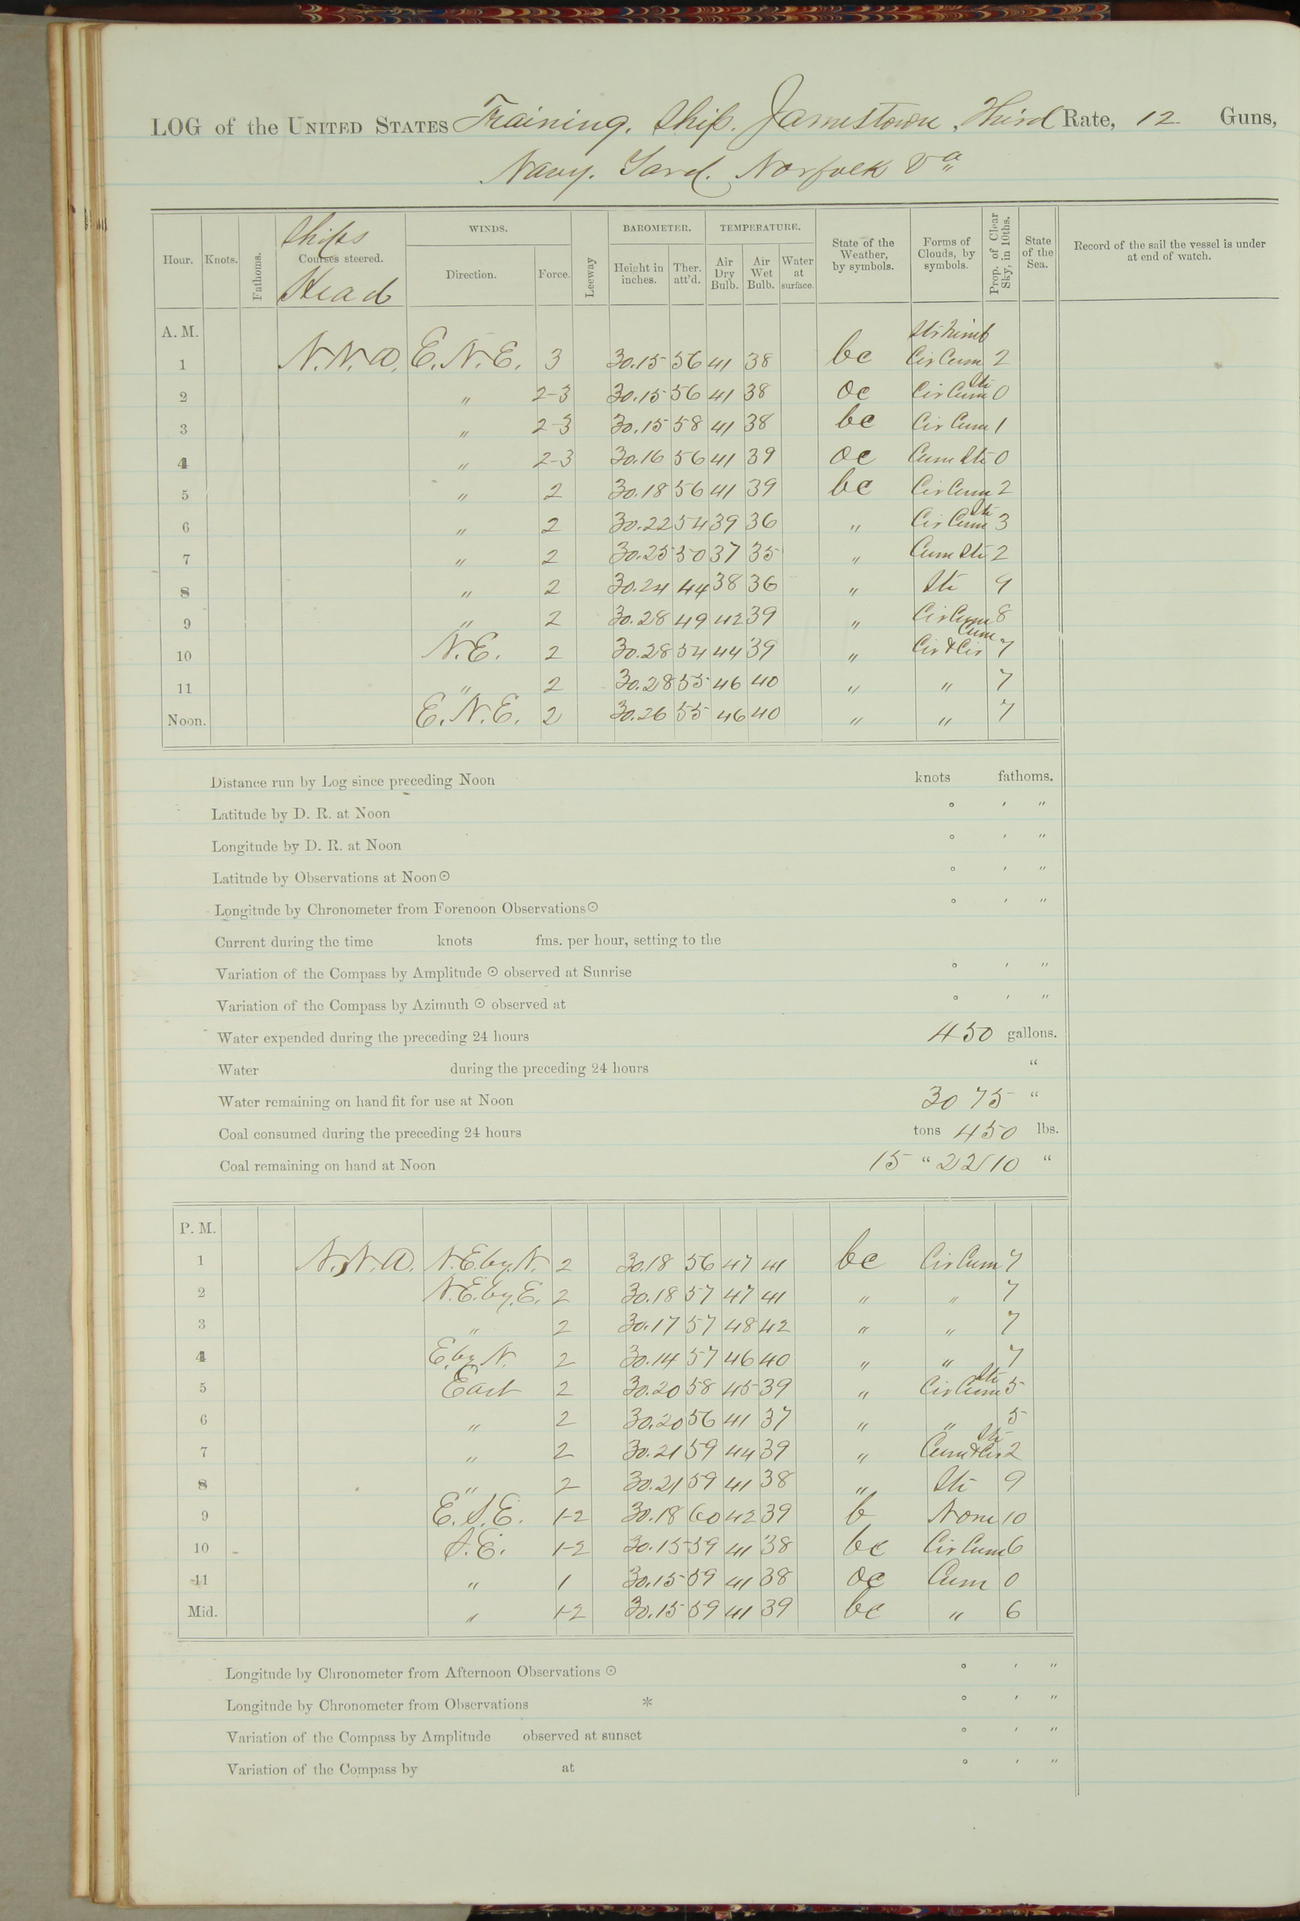 LOG of the UNITED STATES Training. Ship. Jamestown, Third Rate, 12 Guns,
Navy. Yard. Norfolk Va
Hour. Knots. Fathoms. Ships Courses steered. Head WINDS. Direction. Force. Leeway BAROMETER. Height in inches. Ther. att'd. TEMPERATURE. Air Dry Bulb. Air Wet Bulb. Water at surface. State of the Weather, by symbols. Forms of Clouds, by symbols. Prop. of Clear Sky, in 10ths. State of the Sea. Record of the sail the vessel is under at end of watch.
A. M.
1 N.N.W. E.N.E. 3 30.15 56 41 38 bc Str Nimb Cir Cum 2
2 " 2-3 30.15 56 41 38 oc Cir Cum Str 0
3 " 2-3 30.15 58 41 38 bc Cir Cum 1
4 " 2-3 30.16 56 41 39 oc Cum Str 0
5 " 2 30.18 56 41 39 bc Cir Cum 2
6 " 2 30.22 54 39 36 " Cir Cum Str 3
7 " 2 30.25 50 37 35 " Cum Str 2
8 " 2 30.24 44 38 36 " Str 9
9 " 2 30.28 49 42 39 " Cir Cum 8
10 N.E. 2 30.28 54 44 39 " Cir & Cir Cum 7
11 " 2 30.28 55 46 40 " " 7
Noon. E.N.E. 2 30.26 55 46 40 " " 7
Distance run by Log since preceding Noon knots fathoms.
Latitude by D. R. at Noon ° ′ ″
Longitude by D. R. at Noon ° ′ ″
Latitude by Observations at Noon ☉ ° ′ ″
Longitude by Chronometer from Forenoon Observations ☉ ° ′ ″
Current during the time knots fms. per hour, setting to the
Variation of the Compass by Amplitude ☉ observed at Sunrise ° ′ ″
Variation of the Compass by Azimuth ☉ observed at ° ′ ″
Water expended during the preceding 24 hours 450 gallons.
Water during the preceding 24 hours "
Water remaining on hand fit for use at Noon 3075 "
Coal consumed during the preceding 24 hours tons 450 lbs.
Coal remaining on hand at Noon 15 " 2210 "
P. M.
1 N.N.W. N.E.by.N. 2 30.18 56 47 41 bc Cir Cum 7
2 N.E.by.E. 2 30.18 57 47 41 " " 7
3 " 2 30.17 57 48 42 " " 7
4 E.by N. 2 30.14 57 46 40 " " 7
5 East 2 30.20 58 45 39 " Cir Cum Str 5
6 " 2 30.20 56 41 37 " " 5
7 " 2 30.21 59 44 39 " Cum & Cir Str 2
8 " 2 30.21 59 41 38 " Str 9
9 E.S.E. 1-2 30.18 60 42 39 b None 10
10 S.E. 1-2 30.15 59 41 38 bc Cir Cum 6
11 " 1 30.15 59 41 38 oc Cum 0
Mid. " 1-2 30.15 59 41 39 bc " 6
Longitude by Chronometer from Afternoon Observations ☉ ° ′ ″
Longitude by Chronometer from Observations * ° ′ ″
Variation of the Compass by Amplitude observed at sunset ° ′ ″
Variation of the Compass by at ° ′ ″